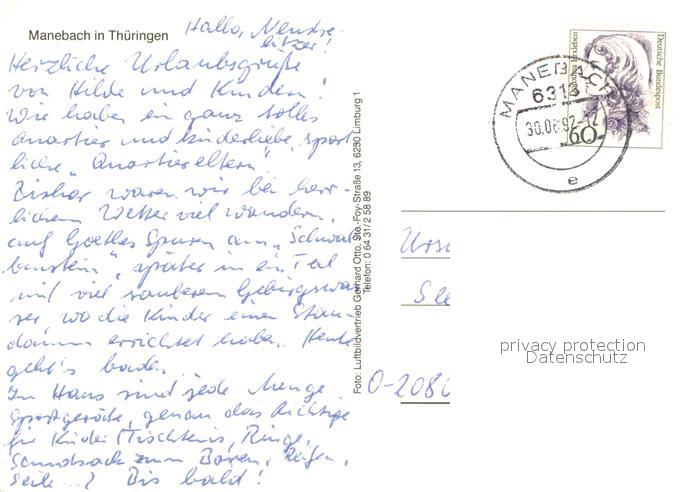 Manebach in Thüringen
Hallo, Neustre-
litzer!
Herzliche Urlaubsgrüße
von Hilde und Kindern!
Wir haben ein ganz tolles
Quartier und kinderliebe, sport-
liche „Quartiereltern“
Bisher waren wir bei herr-
lichem Wetter viel wandern,
auf Goethes Spuren am „Schwal-
benstein“, später in ein Tal
mit viel sauberem Gebirgswas-
ser, wo die Kinder einen Stau-
damm errichtet haben. Heute
geht's baden.
Im Haus sind jede Menge
Sportgeräte, genau das Richtige
für Kinder (Tischtennis, Ringe,
Sandsack zum Boxen, Reifen,
Seile ...) Bis bald!
Foto: Luftbildvertrieb Gerhard Otto, Ste.-Foy-Straße 13, 6250 Limburg 1
Telefon: 0 64 31/2 58 89
Deutsche Bundespost
60
MANEBACH
6313
30.06.92-12
e
Urs
See
O-2080
privacy protection
Datenschutz